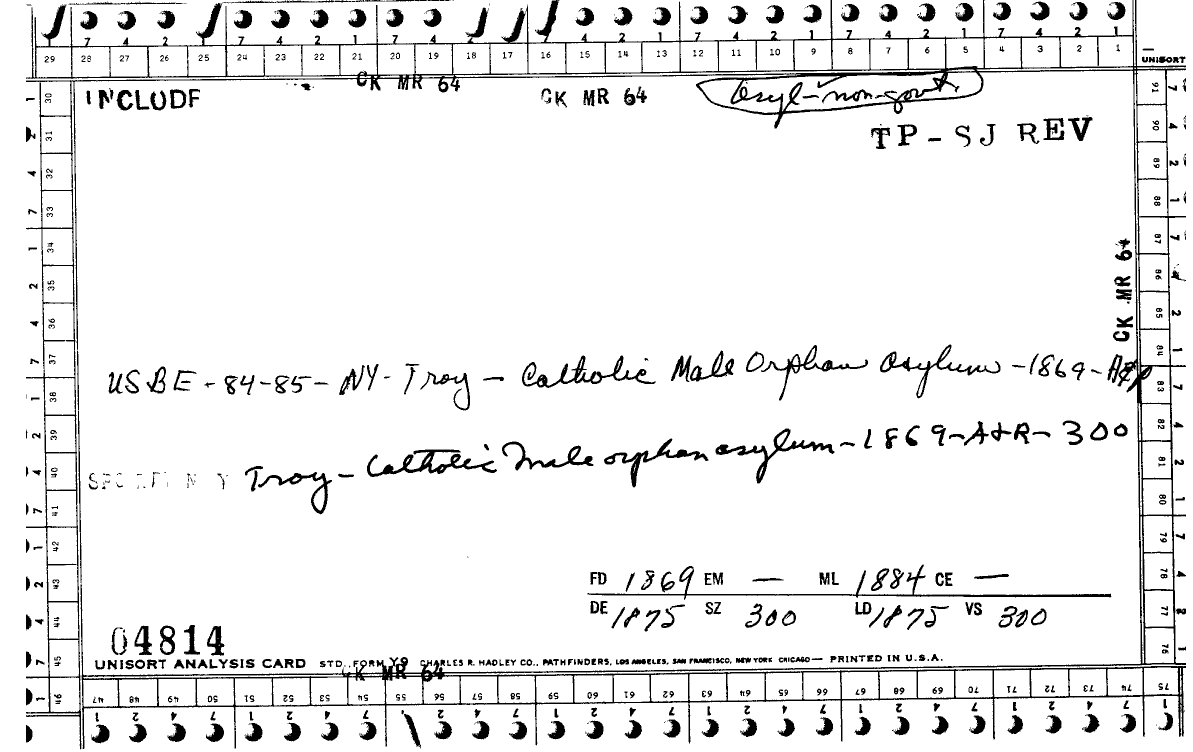 7 4 2 1 7 4 2 1 7 4 2 1 7 4 2 1 7 4 2 1 7 4 2 1
29 28 27 26 25 24 23 22 21 20 19 18 17 16 15 14 13 12 11 10 9 8 7 6 5 4 3 2 1
UNISORT
INCLUDE CK MR 64 CK MR 64 Asyl-non-govt.
TP-SJ REV
CK MR 64
USBE-84-85-NY-Troy-Catholic Male Orphan Asylum-1869-
N Y Troy-Catholic Male orphan asylum-1869-A&R-300
FD 1869 EM — ML 1884 CE —
DE 1875 SZ 300 LD 1875 VS 300
04814
UNISORT ANALYSIS CARD STD. FORM Y9 CHARLES R. HADLEY CO., PATHFINDERS, LOS ANGELES, SAN FRANCISCO, NEW YORK CHICAGO— PRINTED IN U.S.A.
CK MR 64
30 31 32 33 34 35 36 37 38 39 40 41 42 43 44 45 46
47 48 49 50 51 52 53 54 55 56 57 58 59 60 61 62 63 64 65 66 67 68 69 70 71 72 73 74 75
91 90 89 88 87 86 85 84 83 82 81 80 79 78 77 76